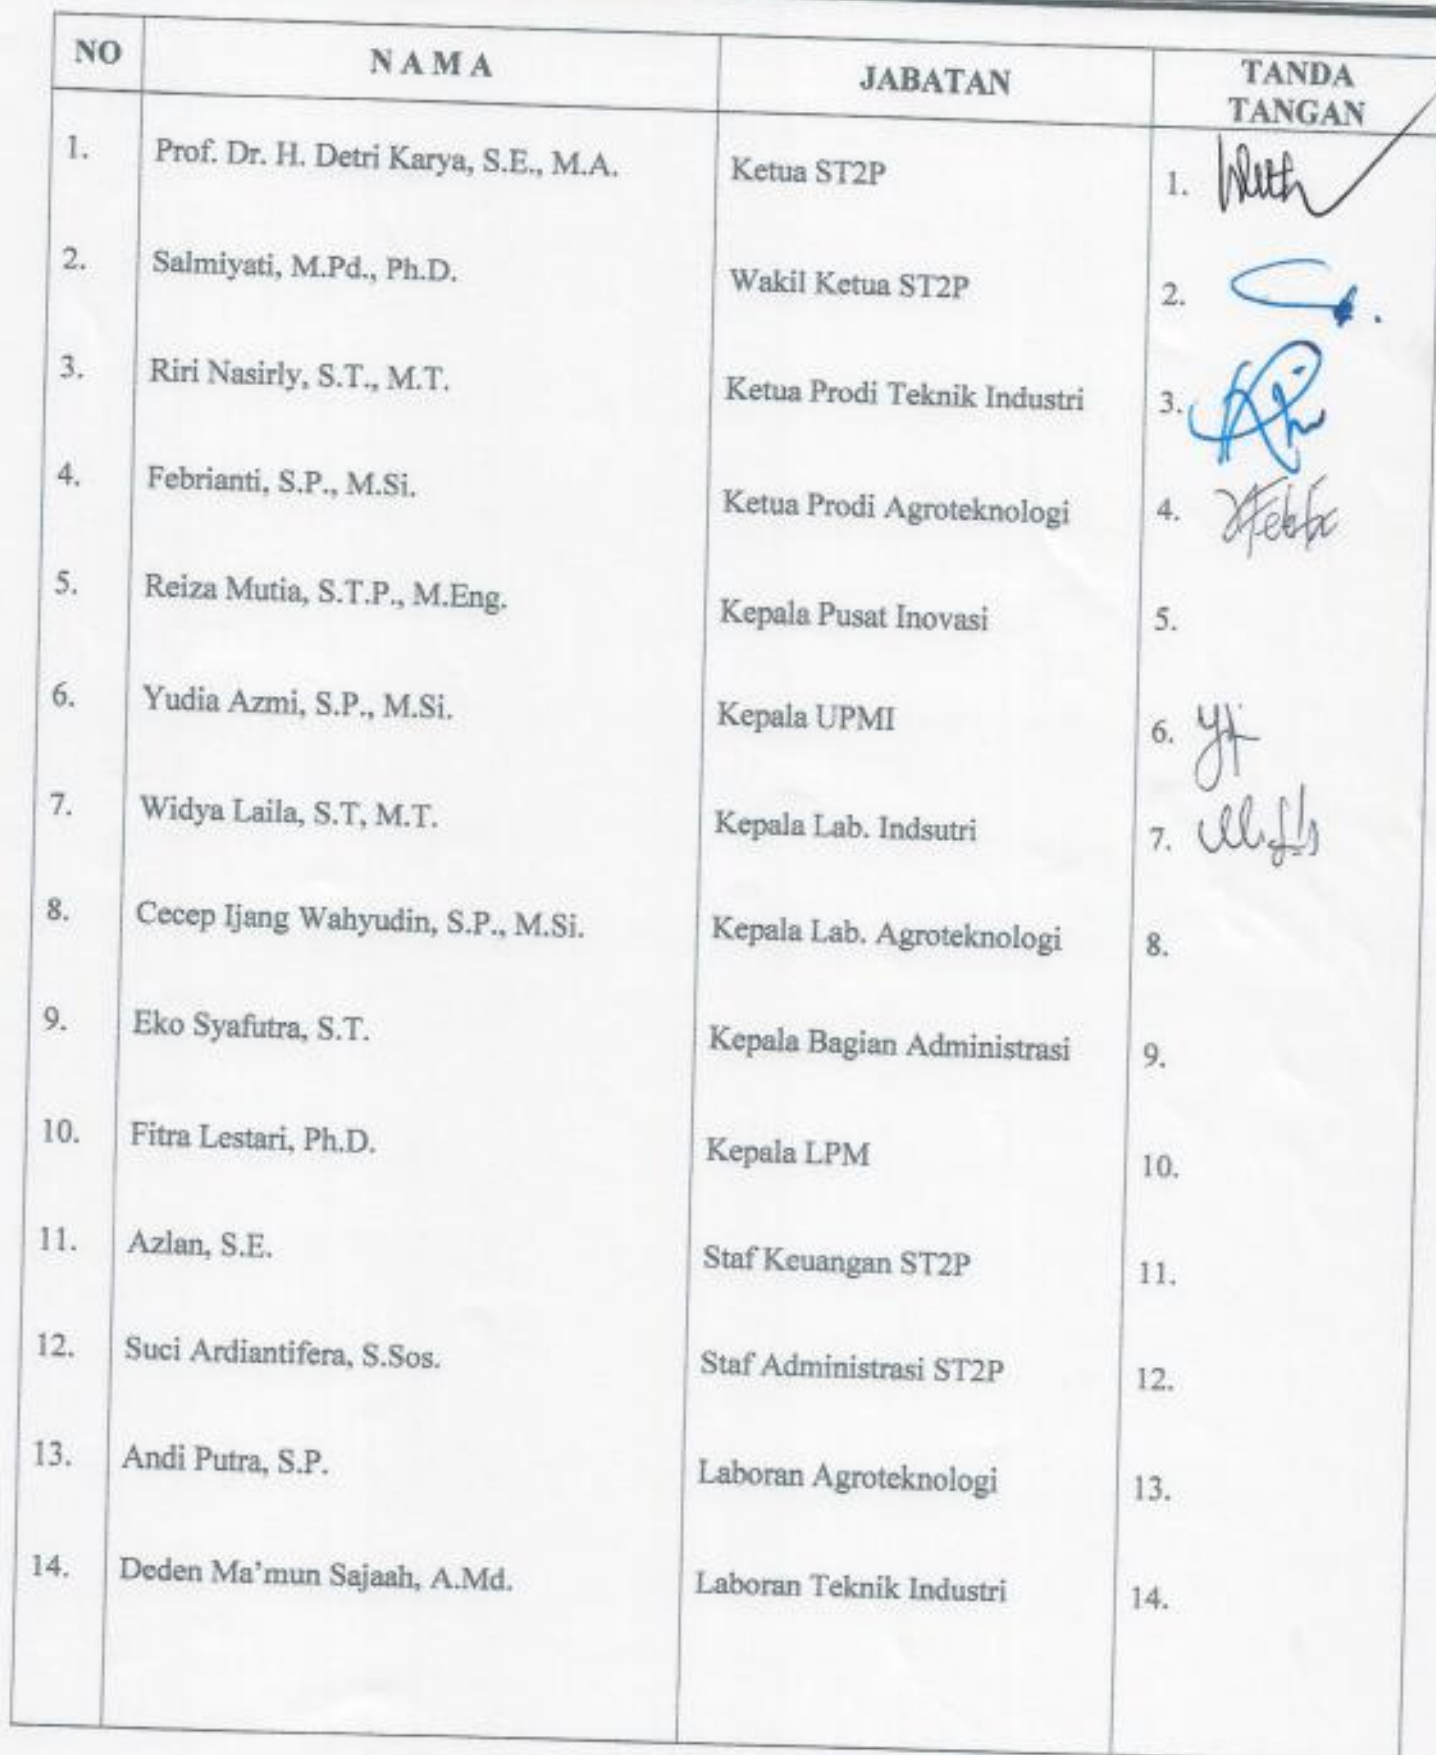 NO NAMA JABATAN TANDA
TANGAN
1. Prof. Dr. H. Detri Karya, S.E., M.A. Ketua ST2P 1.
2. Salmiyati, M.Pd., Ph.D. Wakil Ketua ST2P 2.
3. Riri Nasirly, S.T., M.T. Ketua Prodi Teknik Industri 3.
4. Febrianti, S.P., M.Si. Ketua Prodi Agroteknologi 4.
5. Reiza Mutia, S.T.P., M.Eng. Kepala Pusat Inovasi 5.
6. Yudia Azmi, S.P., M.Si. Kepala UPMI 6.
7. Widya Laila, S.T, M.T. Kepala Lab. Indsutri 7.
8. Cecep Ijang Wahyudin, S.P., M.Si. Kepala Lab. Agroteknologi 8.
9. Eko Syafutra, S.T. Kepala Bagian Administrasi 9.
10. Fitra Lestari, Ph.D. Kepala LPM 10.
11. Azlan, S.E. Staf Keuangan ST2P 11.
12. Suci Ardiantifera, S.Sos. Staf Administrasi ST2P 12.
13. Andi Putra, S.P. Laboran Agroteknologi 13.
14. Deden Ma'mun Sajaah, A.Md. Laboran Teknik Industri 14.